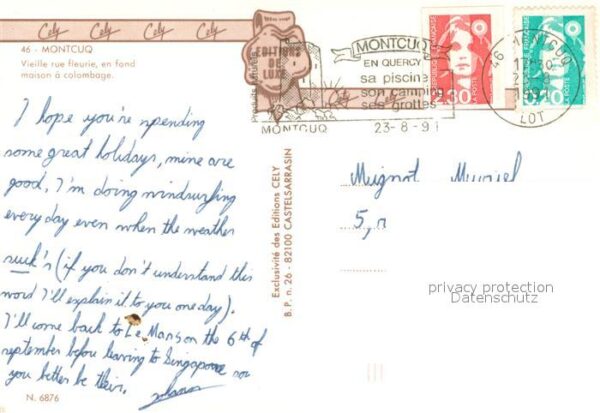 Cely Cely Cely Cely
46 - MONTCUQ
Vieille rue fleurie, en fond
maison à colombage.
EDITIONS
DE
LUXE
MONTCUQ
EN QUERCY
sa piscine
son camping
ses grottes
MONTCUQ 23-8-91
46 MONTCUQ
LOT
2,30
0,20
I hope you're spending
some great holidays, mine are
good. I'm doing windsurfing
everyday even when the weather
suck's (if you don't understand this
word I'll explain it to you one day).
I'll come back to Le Mans on the 6th of
september before leaving to Singapore so
you better be their.
N. 6876
Exclusivité des Editions CELY
B.P. n. 26 - 82100 CASTELSARRASIN
Mugnot Muriel
5,
privacy protection
Datenschutz